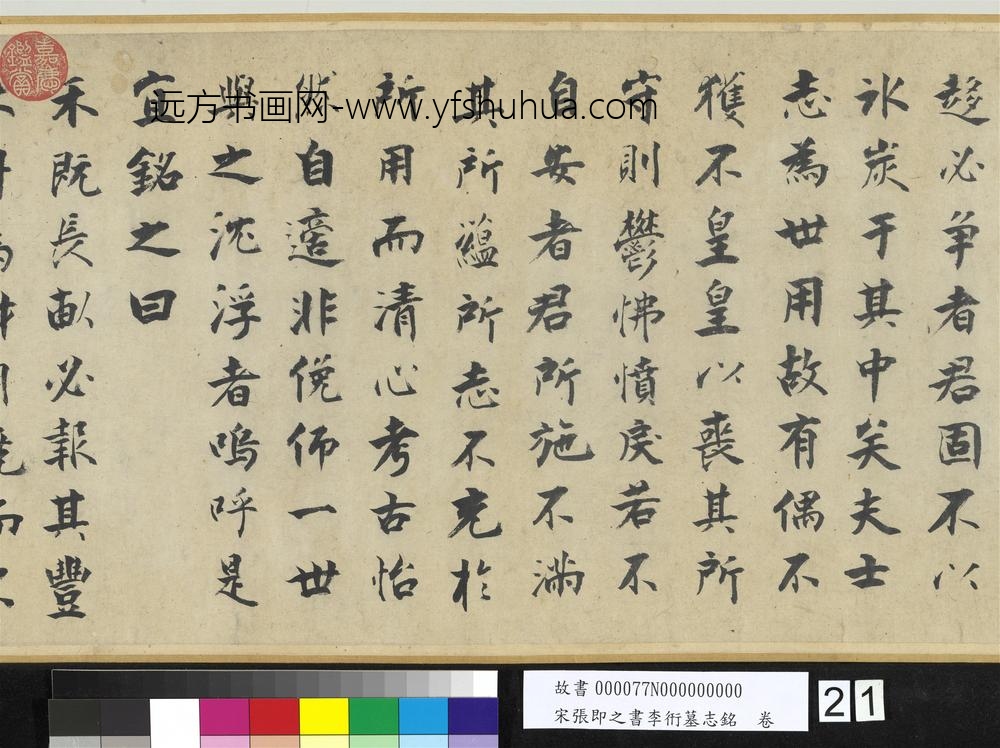 趍必争者君固不以
冰炭于其中矣夫士
志為世用故有偶不
獲不皇皇以喪其所
守則鬱怫憤戾若不
自安者君所施不滿
其所蘊所志不充於
所用而清心考古怡
然自適非俛仰一世
與之沈浮者嗚呼是
宜銘之曰
禾既長畝必報其豐
远方书画网-www.yfshuhua.com
故書 000077N000000000
宋張即之書李衎墓志銘 卷
21